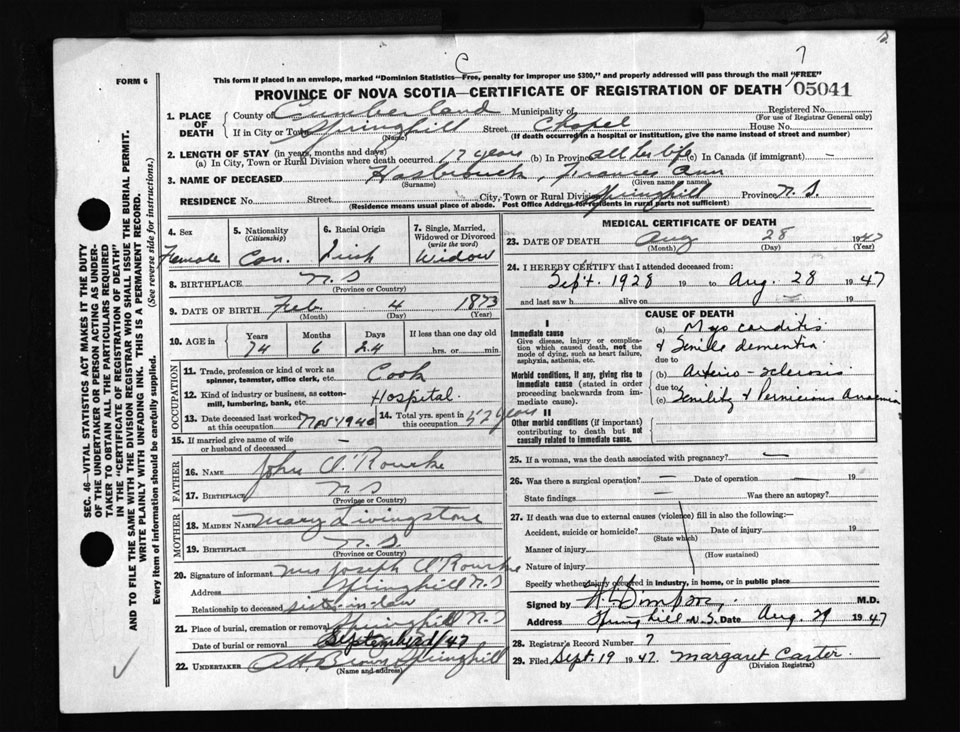 FORM 6
This form if placed in an envelope, marked "Dominion Statistics—Free, penalty for improper use $300," and properly addressed will pass through the mail "FREE"
C
7
PROVINCE OF NOVA SCOTIA—CERTIFICATE OF REGISTRATION OF DEATH
05041
1. PLACE OF DEATH
County of Cumberland Municipality of Registered No.
(For use of Registrar General only)
If in City or Town Springhill Street Chapel House No.
(Name) (If death occurred in a hospital or institution, give the name instead of street and number)
2. LENGTH OF STAY (in years, months and days)
(a) In City, Town or Rural Division where death occurred 17 years (b) In Province all her life (c) In Canada (if immigrant) —
3. NAME OF DECEASED Hasbrouck, Frances Ann
(Surname) (Given name or names)
RESIDENCE No. Street City, Town or Rural Division Springhill Province N. S.
(Residence means usual place of abode. Post Office Address for residents in rural parts not sufficient)
4. Sex Female
5. Nationality (Citizenship) Can.
6. Racial Origin Irish
7. Single, Married, Widowed or Divorced (write the word) Widow
8. BIRTHPLACE N. S
(Province or Country)
9. DATE OF BIRTH Feb 4 1873
(Month) (Day) (Year)
10. AGE in Years 74 Months 6 Days 24 If less than one day old hrs. or min.
OCCUPATION
11. Trade, profession or kind of work as spinner, teamster, office clerk, etc. Cook
12. Kind of industry or business, as cotton-mill, lumbering, bank, etc. Hospital
13. Date deceased last worked at this occupation Nov 1940
14. Total yrs. spent in this occupation years
15. If married give name of wife or husband of deceased —
FATHER
16. NAME John O'Rourke
17. BIRTHPLACE N. S
(Province or Country)
MOTHER
18. MAIDEN NAME Mary Livingstone
19. BIRTHPLACE N. S.
(Province or Country)
20. Signature of informant Mrs Joseph O'Rourke
Address Springhill N. S
Relationship to deceased sist-in-law
21. Place of burial, cremation or removal Springhill N. S
Date of burial or removal September 1/47
22. UNDERTAKER A H Brown Springhill
(Name and address)
MEDICAL CERTIFICATE OF DEATH
23. DATE OF DEATH Aug 28 1947
(Month) (Day) (Year)
24. I HEREBY CERTIFY that I attended deceased from:
Sept. 1928 19 to Aug. 28 1947
and last saw h alive on 19
CAUSE OF DEATH
I
Immediate cause
Give disease, injury or complication which caused death, not the mode of dying, such as heart failure, asphyxia, asthenia, etc.
(a) Myocarditis
& Senile dementia
due to
Morbid conditions, if any, giving rise to immediate cause (stated in order proceeding backwards from immediate cause).
(b) Arterio-sclerosis
due to
(c) Senility & Pernicious Anaemia
II
Other morbid conditions (if important) contributing to death but not causally related to immediate cause.
25. If a woman, was the death associated with pregnancy? —
26. Was there a surgical operation? — Date of operation — 19
State findings Was there an autopsy?
27. If death was due to external causes (violence) fill in also the following:—
Accident, suicide or homicide? Date of injury 19
(State which)
Manner of injury
(How sustained)
Nature of injury
Specify whether injury occurred in industry, in home, or in public place
Signed by M.D.
Address Springhill N. S. Date Aug. 29 1947
28. Registrar's Record Number 7
29. Filed Sept. 19 1947. Margaret Carter.
(Division Registrar)
SEC. 46—VITAL STATISTICS ACT MAKES IT THE DUTY
OF THE UNDERTAKER OR PERSON ACTING AS UNDERTAKER TO OBTAIN ALL THE PARTICULARS REQUIRED
IN THE "CERTIFICATE OF REGISTRATION OF DEATH"
AND TO FILE THE SAME WITH THE DIVISION REGISTRAR WHO SHALL ISSUE THE BURIAL PERMIT.
WRITE PLAINLY WITH UNFADING INK. THIS IS A PERMANENT RECORD.
Every item of information should be carefully supplied. (See reverse side for instructions.)